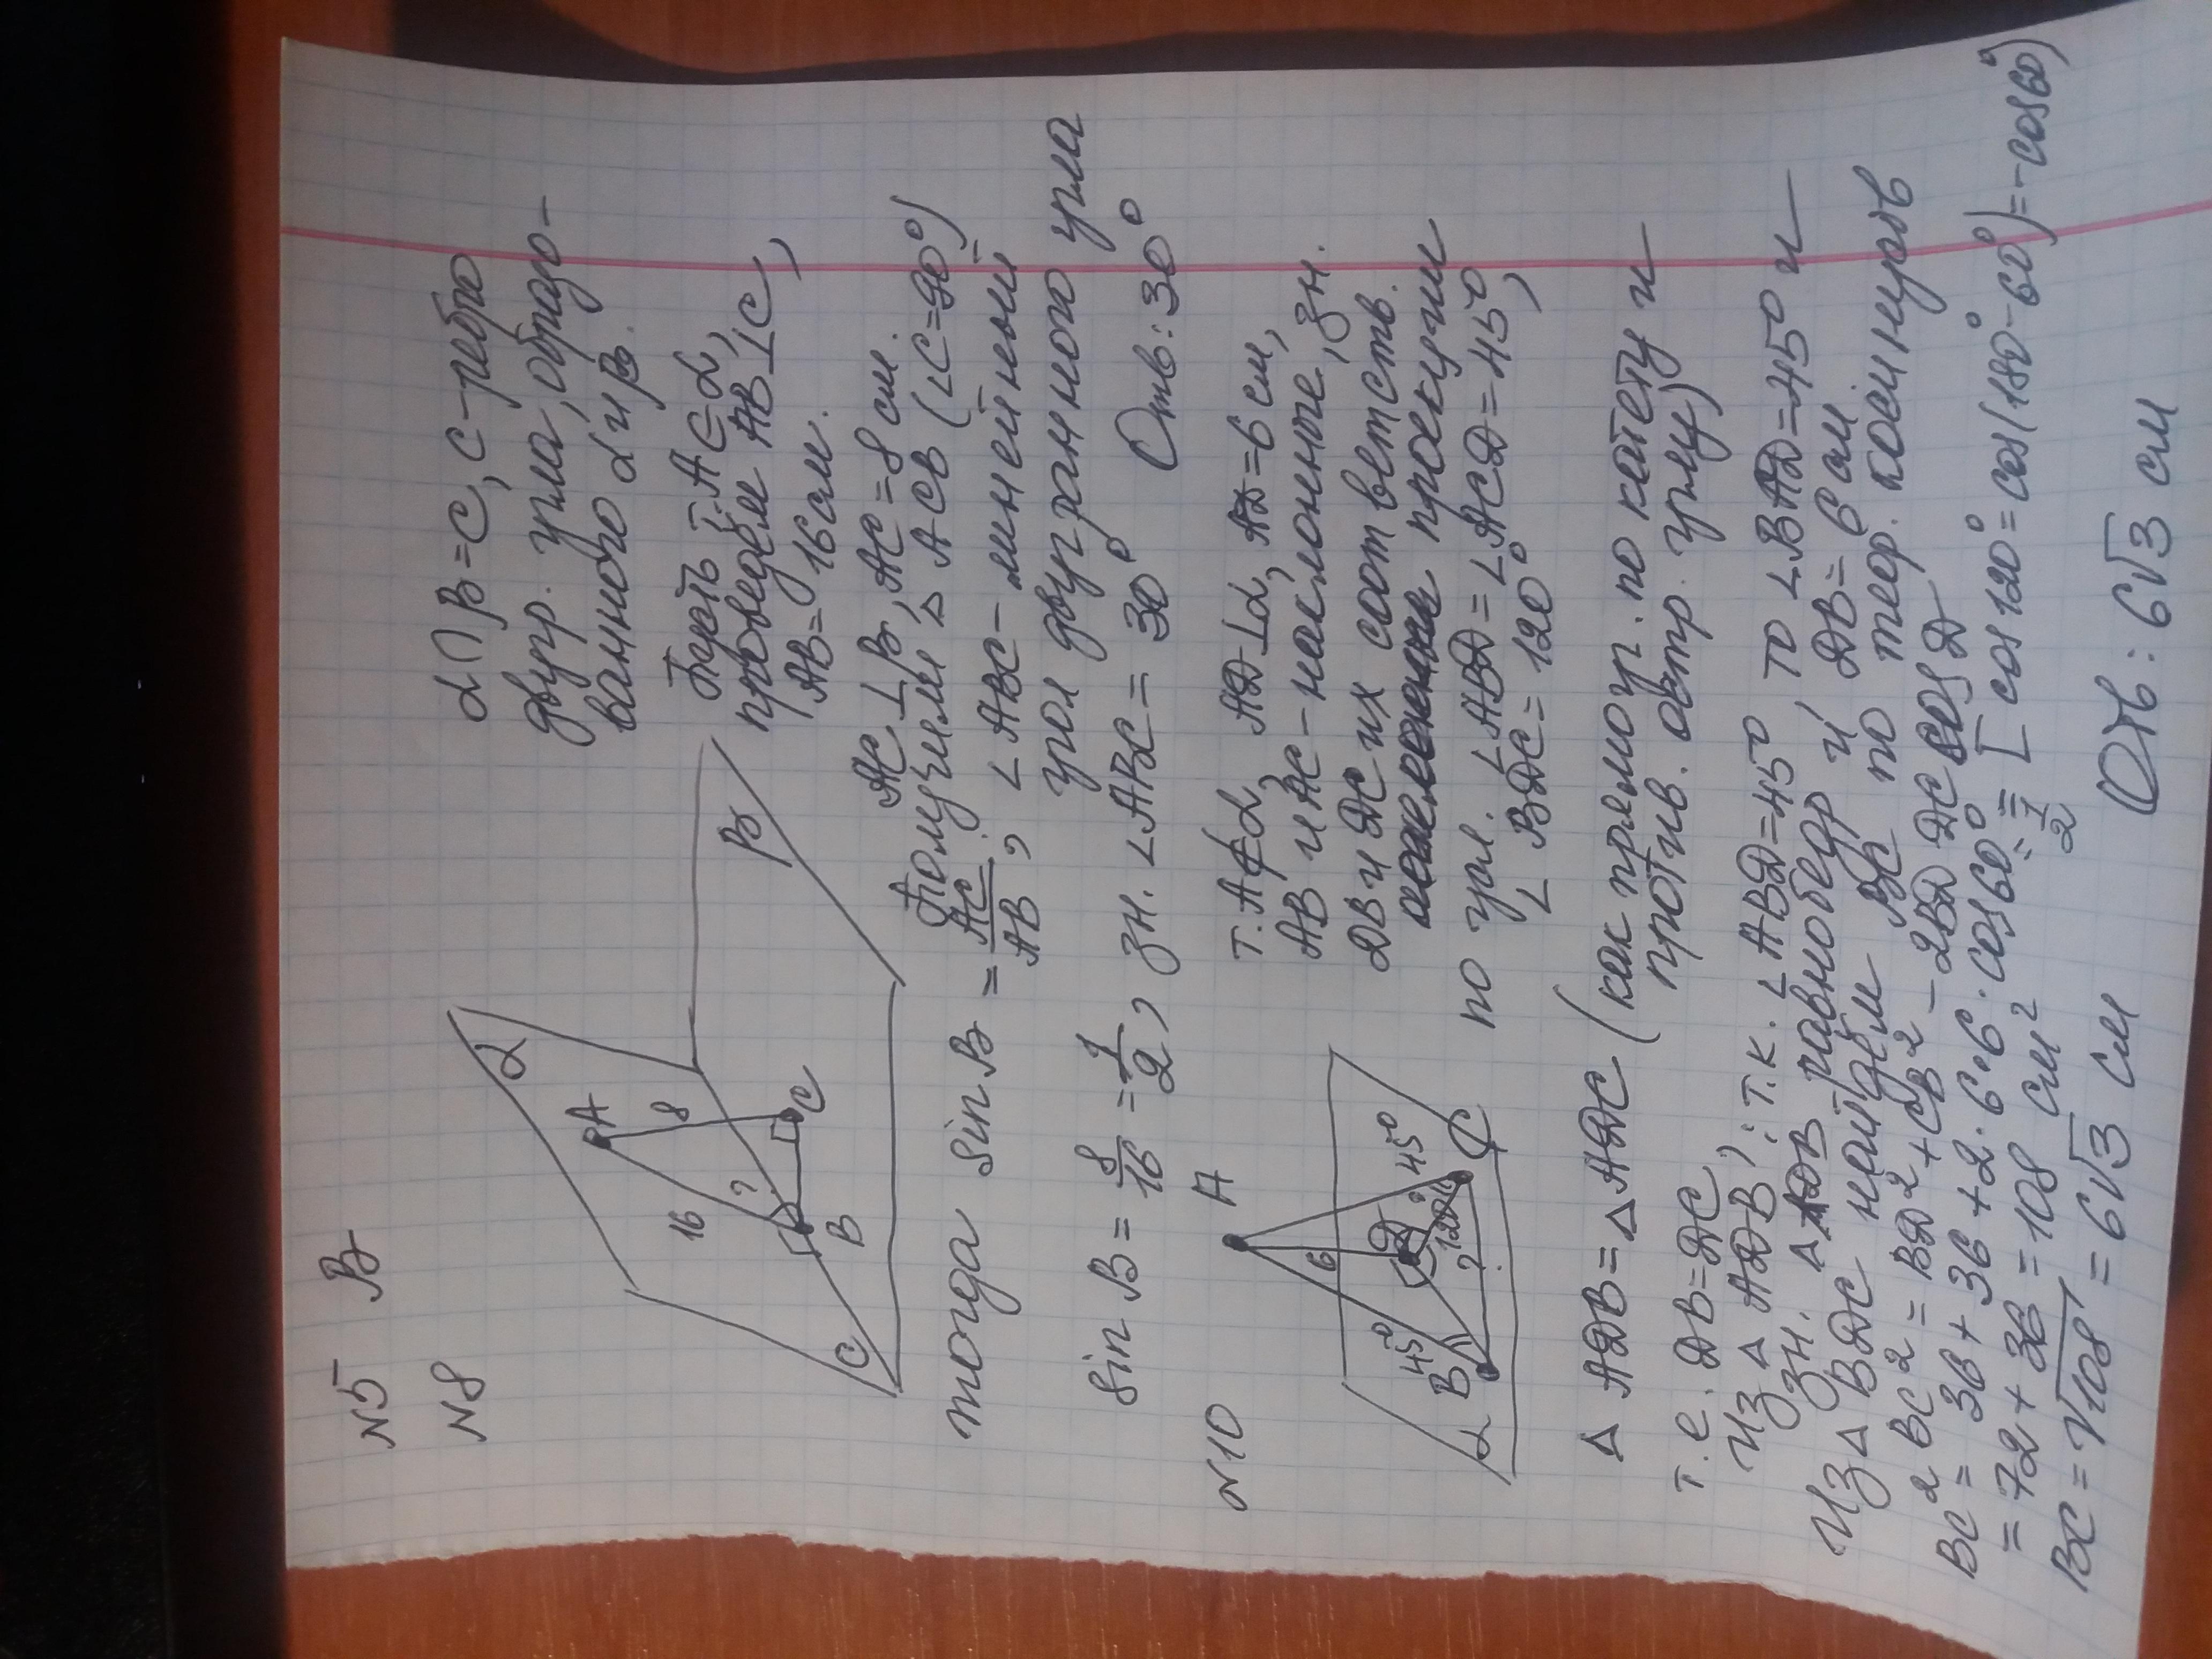 N5 B
N8
α ∩ β = C, C - ребро
двугр. угла, образо-
ванного α и β.
α
β
A
8
16
?
B
C
C
Берём т. A ∈ α,
проведём AB ⊥ C,
AB = 16 см.
AC ⊥ β, AC = 8 см.
Получим △ ACB (∠C = 90°)
тогда sin B = AC/AB, ∠ABC - линейный
угол двугранного угла
sin B = 8/16 = 1/2, зн. ∠ABC = 30° Отв: 30°
N10
A
6
45°
45°
D
120°
?
B
C
α
т. A ∉ α, AD ⊥ α, AD = 6 см,
AB и AC - наклонные, зн.
DB и DC их соответств.
проекции
по усл. ∠ABD = ∠ACD = 45°,
∠ BDC = 120°
△ ADB = △ ADC (как прямоуг. по катету и
против. остр. углу)
т. е. DB = DC
Из △ ADB: т.к. ∠ABD = 45°, то ∠BAD = 45° и
Зн. △ ADB равнобедр и, DB = 6 см
Из △ BDC найдём BC по теор. косинусов
BC² = BD² + CB² - 2BD DC cos D
BC² = 36 + 36 + 2·6·6·cos 60° = [cos 120° = cos(180° - 60°) = -cos 60°]
= 72 + 36 = 108 см² 1/2
BC = √108 = 6√3 см Отв: 6√3 см